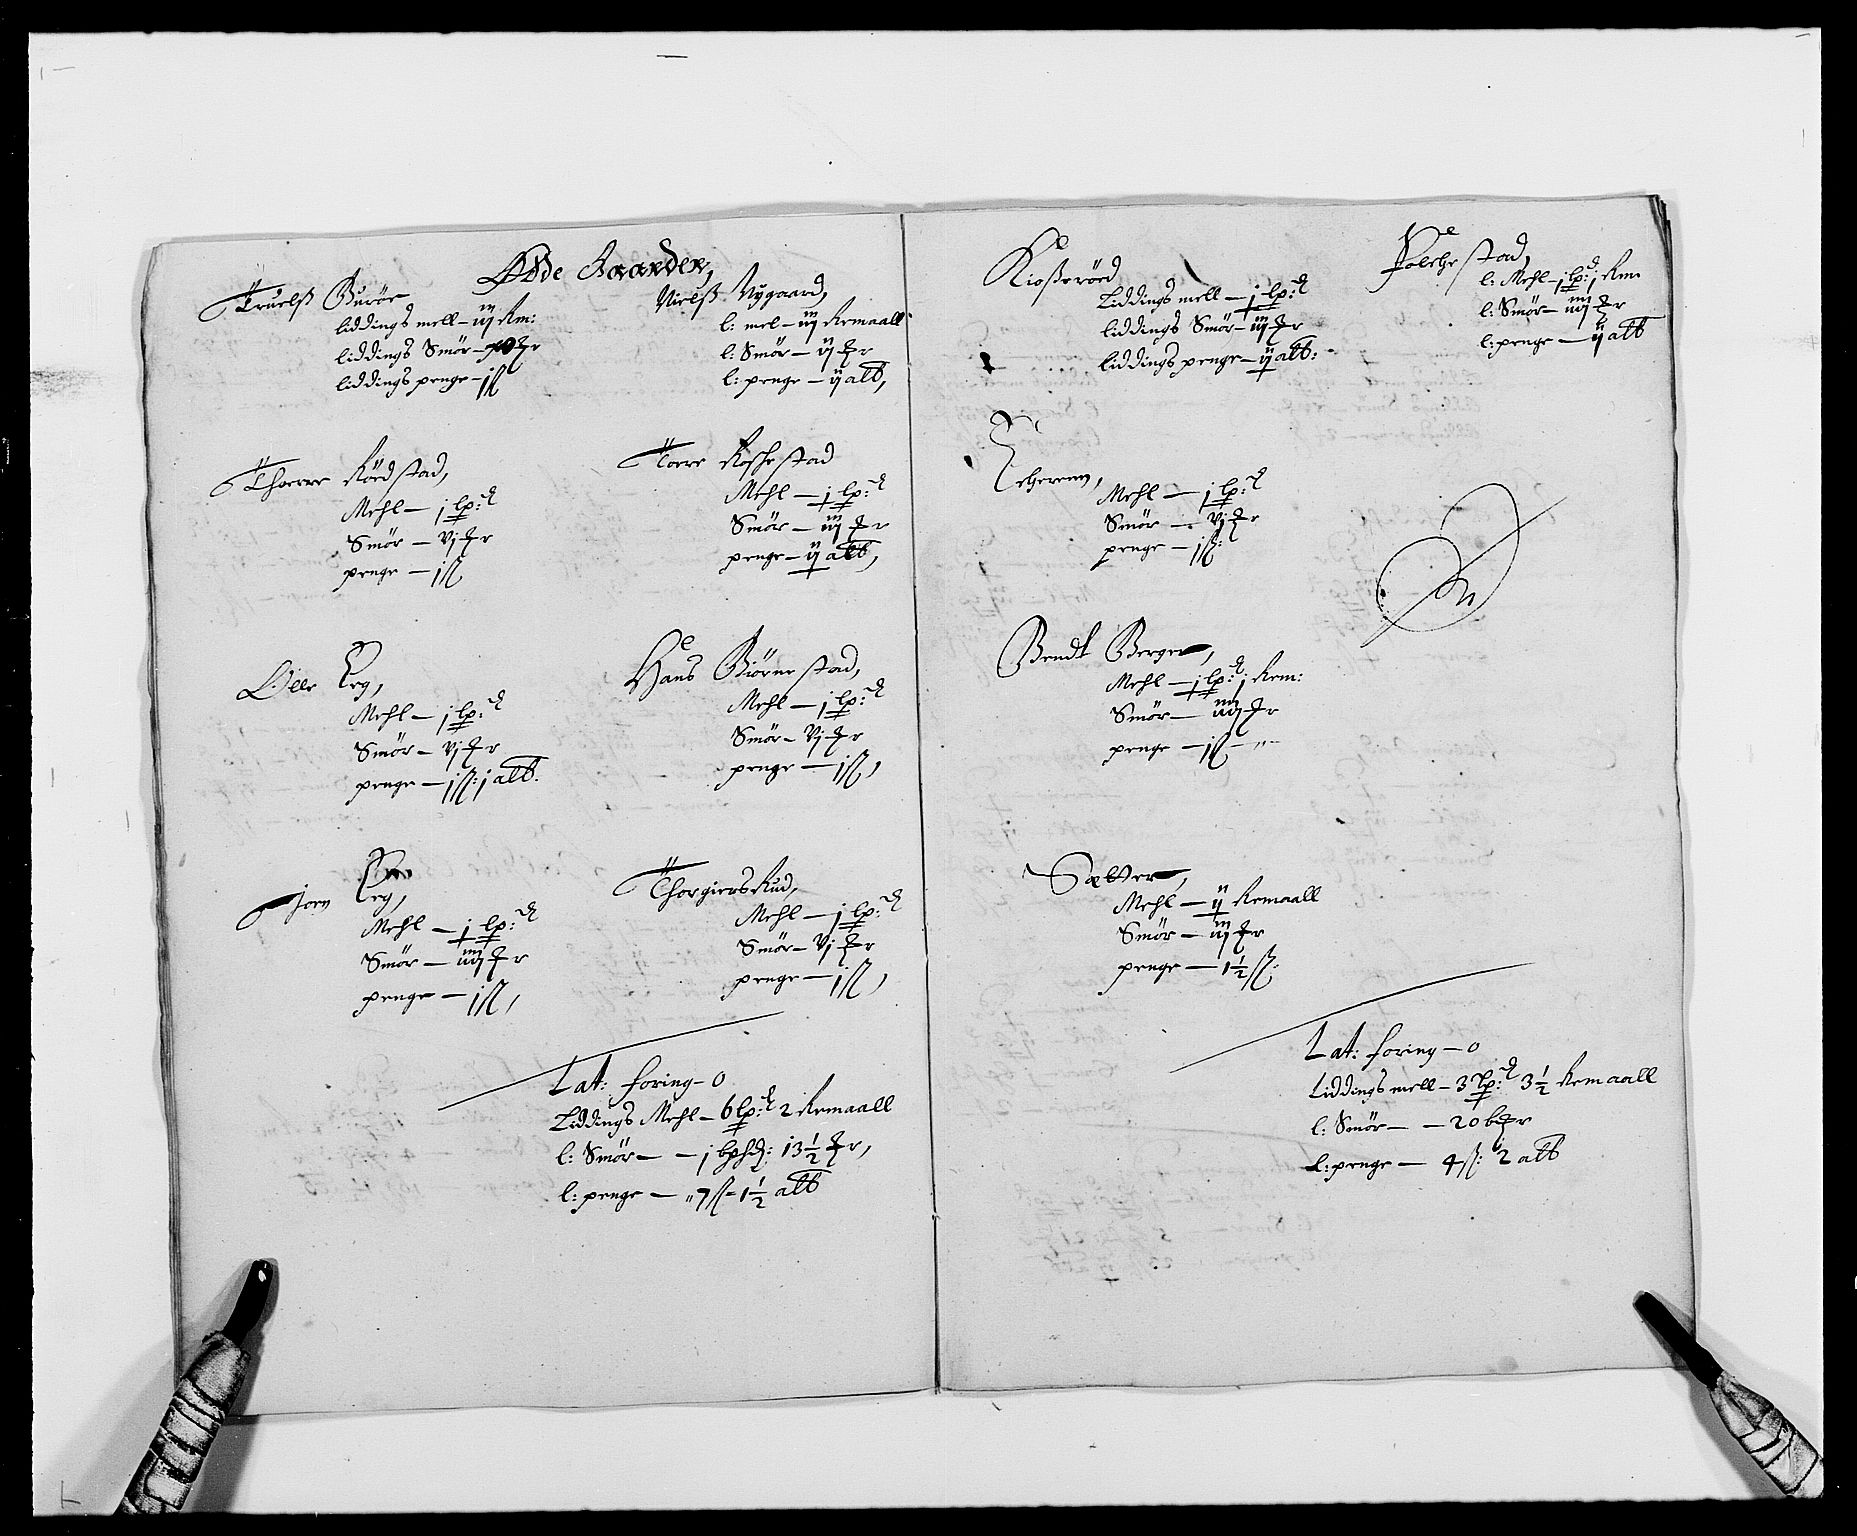 Øde Gaarder,
Truelß Guröe
liddings mell – iij Rm:
liddings Smör –
liddings penge – j ß
Nielß Nygaard,
l: mel – iij Remaall
l: Smör – ij
l: penge – ij alb,
Thorre Rödstad,
Mehl – j lp:d
Smör – vj
penge – j ß
Torre Roskestad
Mehl – j lp:d
Smör – iij
penge – ij alb,
Olle Leg,
Mehl – j lp:d
Smör – vj
penge – j ß: j alb.
Hans Biörnestad,
Mehl – j lp:d
Smör – vj
penge – j ß,
Joen Leg,
Mehl – j lp:d
Smör – iiij
penge – j ß,
Thorgiersrud,
Mehl – j lp:d
Smör – vj
penge – j ß,
Lat: foring – 0
Liddings Mehl – 6 lp:d 2 Remaall
l: Smör – – j 13 1/2
l: penge – 7 ß – 1 1/2 alb
Kioßeröed
Liddings mell – j lp:d
liddings Smör – iij
liddings penge – ij alb:
Folchestad,
l: Mehl – j lp:d j Rm
l: Smör – iiij
l: penge – ij alb
Mehl – j lp:d
Smör – vj
penge – j ß:
Bendt Berger,
Mehl – j lp:d j Rem:
Smör – iiij
penge – j ß – „ –
Sætter,
Mehl – ij Remaall
Smör – iij
penge – 1 1/2 ß:
Lat: foring – 0
Liddings mell – 3 lp:d 3 1/2 Remaall
l: Smör – – 20
l: penge – 4 ß: 2 alb